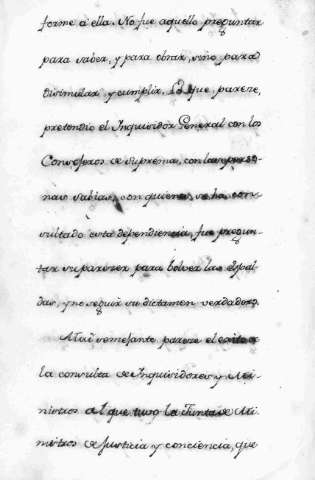 forme á ella. No fue aquello preguntar
para saber, y para obrar, sino para
disimular y cumplir. Lo que, parece,
pretendió el Inquisidor General con los
Consejeros de Suprema, con las perso-
nas sabias, con quienes, se ha con-
sultado esta dependiencia, fue pregun-
tar su parecer para bolver las espal-
das, y no seguir su dictamen verdadero.
Mui semejante parece el exito de
la consulta de Inquisidores y Mi-
nistros al que tuvo la Junta de Mi-
nistros de Justicia y conciencia, que